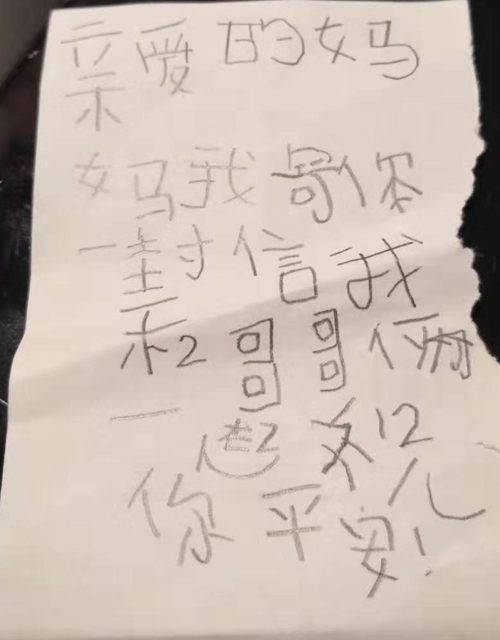 亲爱的妈
妈我寄你
一封信我
和哥哥俩
一起祝
你平安!